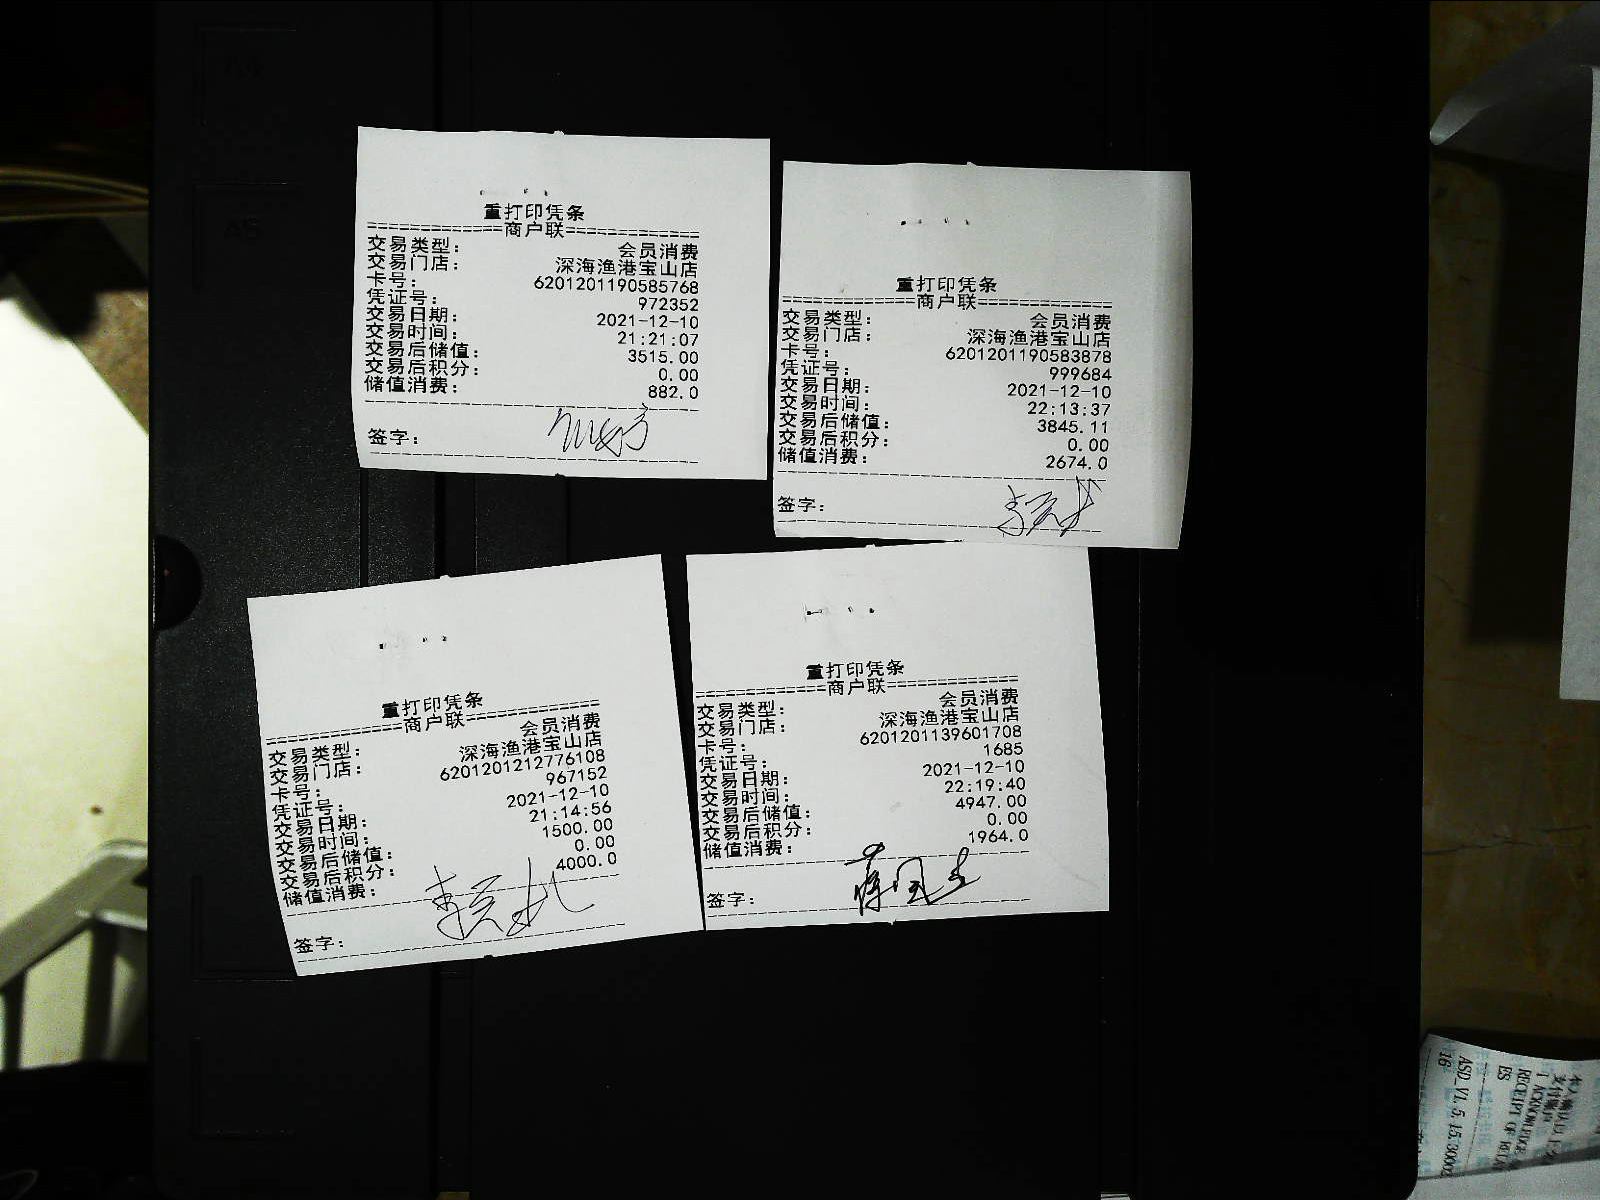 重打印凭条
============商户联============
交易类型： 会员消费
交易门店： 深海渔港宝山店
卡号： 6201201190585768
凭证号： 972352
交易日期： 2021-12-10
交易时间： 21:21:07
交易后储值： 3515.00
交易后积分： 0.00
储值消费： 882.0
签字：
重打印凭条
============商户联============
交易类型： 会员消费
交易门店： 深海渔港宝山店
卡号： 6201201190583878
凭证号： 999684
交易日期： 2021-12-10
交易时间： 22:13:37
交易后储值： 3845.11
交易后积分： 0.00
储值消费： 2674.0
签字：
重打印凭条
============商户联============
交易类型： 会员消费
交易门店： 深海渔港宝山店
卡号： 6201201212776108
凭证号： 967152
交易日期： 2021-12-10
交易时间： 21:14:56
交易后储值： 1500.00
交易后积分： 0.00
储值消费： 4000.0
签字：
重打印凭条
============商户联============
交易类型： 会员消费
交易门店： 深海渔港宝山店
卡号： 6201201139601708
凭证号： 1685
交易日期： 2021-12-10
交易时间： 22:19:40
交易后储值： 4947.00
交易后积分： 0.00
储值消费： 1964.0
签字：
A5
I ACKNOWLEDGE
RECEIPT OF
ES
16